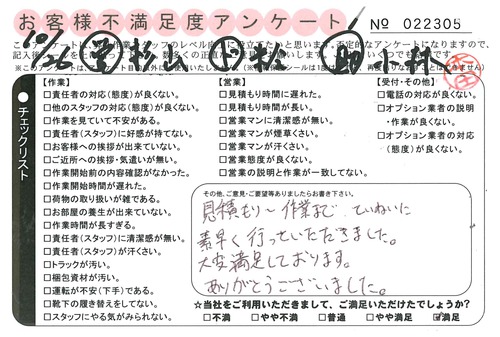 お客様不満足度アンケート
No 022305
【作業】
□責任者の対応(態度)が良くない。
□他のスタッフの対応(態度)が良くない。
□作業を見ていて不安がある。
□責任者(スタッフ)に好感が持てない。
□お客様への挨拶が出来ていない。
□ご近所への挨拶・気遣いが無い。
□作業開始前の内容確認がなかった。
□作業開始時間が遅れた。
□荷物の取り扱いが雑である。
□お部屋の養生が出来ていない。
□作業時間が長すぎる。
□責任者(スタッフ)に清潔感が無い。
□責任者(スタッフ)が汗くさい。
□トラックが汚い。
□梱包資材が汚い。
□運転が不安(下手)である。
□靴下の履き替えをしてない。
□スタッフにやる気がみられない。
【営業】
□見積もり時間に遅れた。
□見積もり時間が長い。
□営業マンに清潔感が無い。
□営業マンが煙草くさい。
□営業マンが汗くさい。
□営業態度が良くない。
□営業の説明と作業が一致してない。
【受付・その他】
□電話の対応が良くない。
□オプション業者の説明
・作業が良くない。
□オプション業者の対応
(態度)が良くない。
●チェックリスト
その他、ご意見・ご要望等ありましたらお書き下さい。
見積もり～作業まで ていねいに
素早く行っていただきました。
大変満足しております。
ありがとうございました。
☆当社をご利用いただきまして、ご満足いただけたでしょうか?
□不満 □やや不満 □普通 □やや満足 ☑満足